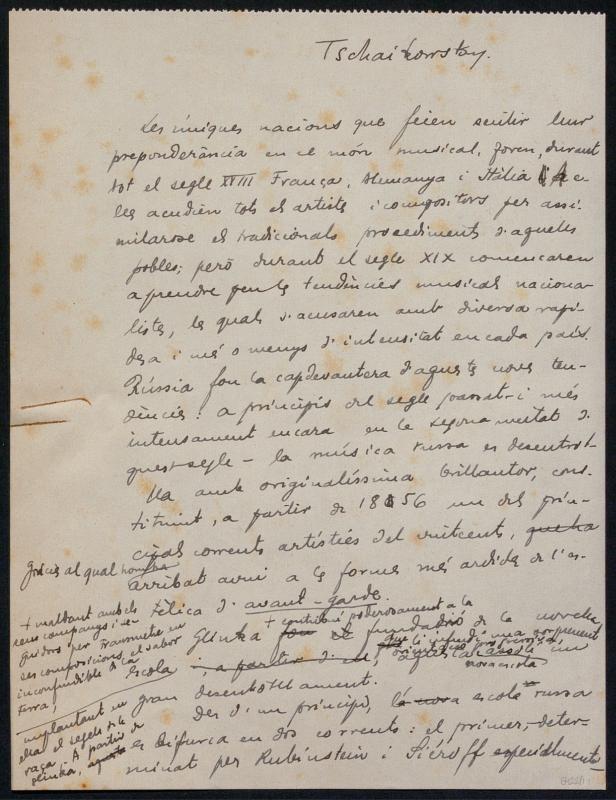 Tschaikowsky.
Les úniques nacions que feien sentir llur
preponderància en el món musical, foren, durant
tot el segle XVIII França, Alemanya i Itàlia
les acudíen tots els artistes i compositors per assi-
milarse els tradicionals procediments d'aquells
pobles; però durant el segle XIX comencaren
a prendre peu les tendències musicals naciona-
listes, les quals s'acusaren amb diversa rapi-
desa i més o menys d'intensitat en cada país.
Rússia fou la capdevantera d'aquests noves ten-
dències: a principis del segle passat - i més
intensament encara en la segona meitat d'a
quest segle - la música russa es desentrot-
lla amb originalíssima brillantor, cons-
tituint, a partir de 1856 un dels prin-
cipals corrents artístics del vuitcents, que ha
gràcies al qual hom ha
arribat avui a les formes més ardides de l'es-
tètica d'avant-garde.
+ maldant amb els
seus companys i se-
guidors per transmetre en
ses composicions, el sabor
inconfundible de la
terra,
Glinka + contribuí poderosament a la
fou el fundador de la novella
escola, a partir d'ell,
nova escola
un
gran desentotllament.
implantant en
ella el segell de la
raça. A partir de
Glinka,
Des d'un principi, la nova escola russa
es bifurca en dos corrents: el primer, deter-
minat per Rubinstein i Siéroff especialment